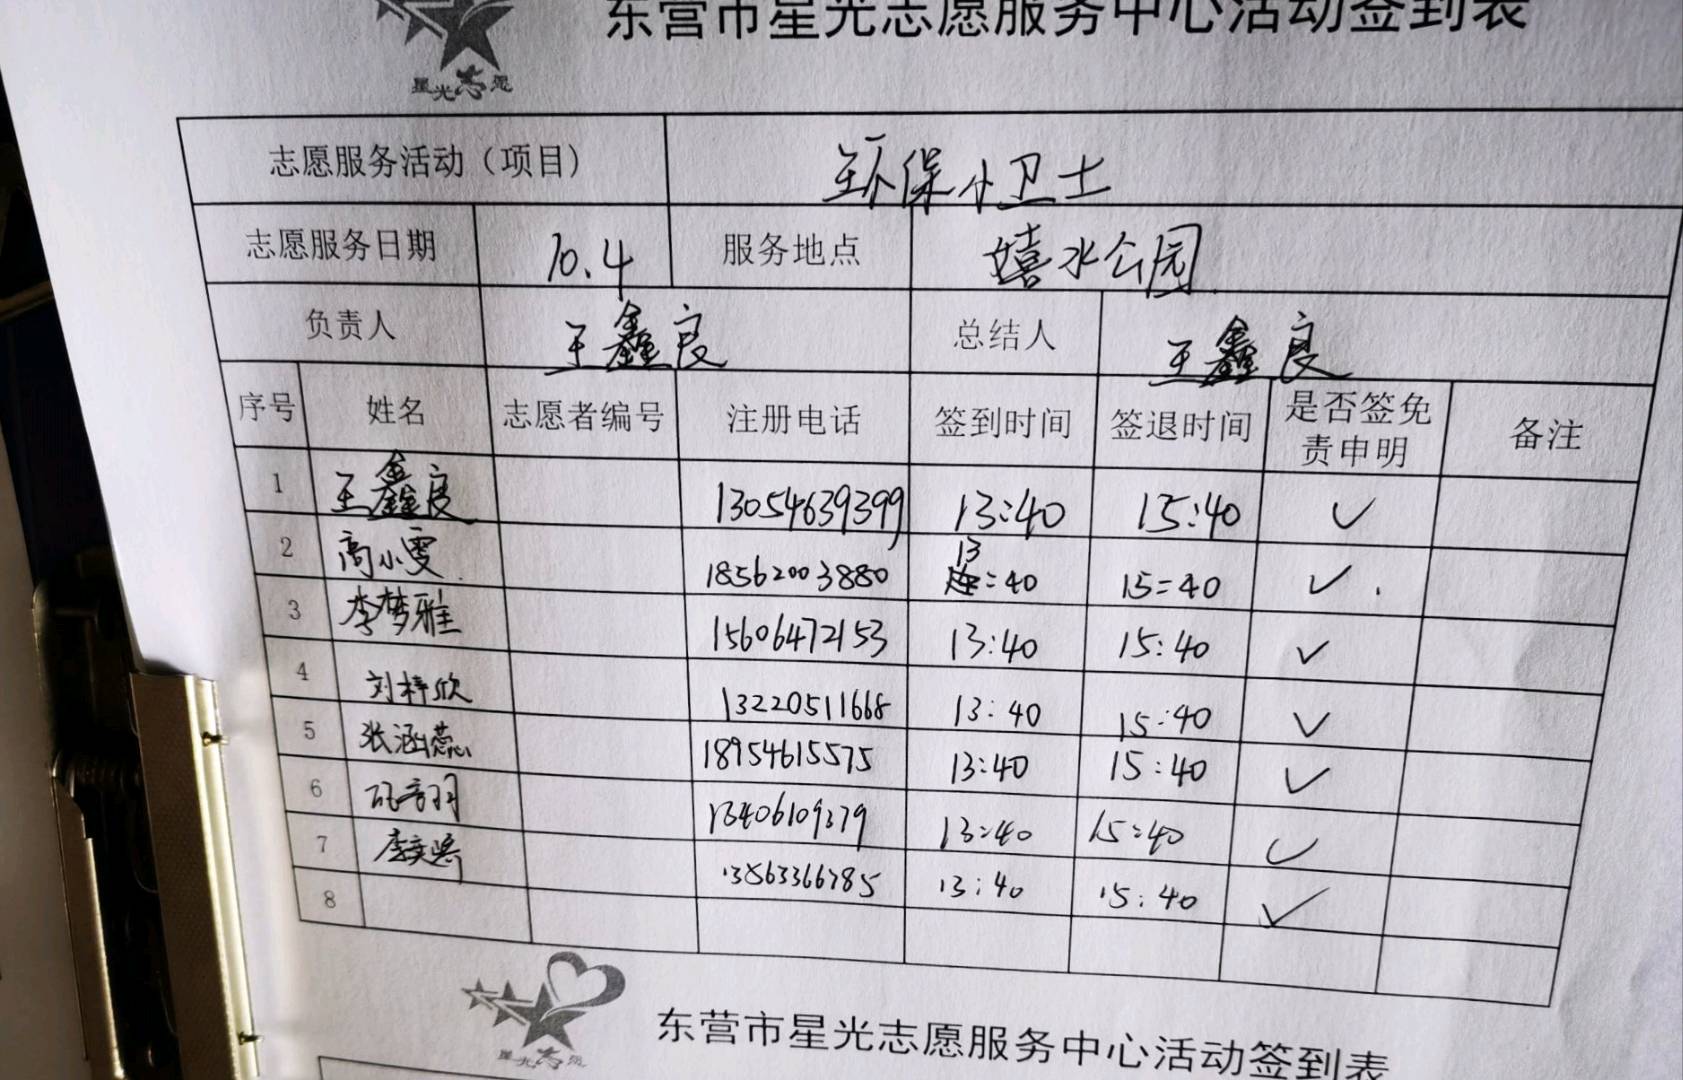 东营市星光志愿服务中心活动签到表
星光志愿
志愿服务活动（项目） 环保小卫士
志愿服务日期 10.4 服务地点 嬉水公园
负责人 王鑫良 总结人 王鑫良
序号 姓名 志愿者编号 注册电话 签到时间 签退时间 是否签免责申明 备注
1 王鑫良 13054639399 13:40 15:40 ✓
2 高小雯 18562003880 13:40 15:40 ✓
3 李梦雅 15606472153 13:40 15:40 ✓
4 刘梓欣 13220511668 13:40 15:40 ✓
5 张涵蕊 18954615575 13:40 15:40 ✓
6 13406109379 13:40 15:40 ✓
7 13563366785 13:40 15:40 ✓
8
星光志愿
东营市星光志愿服务中心活动签到表